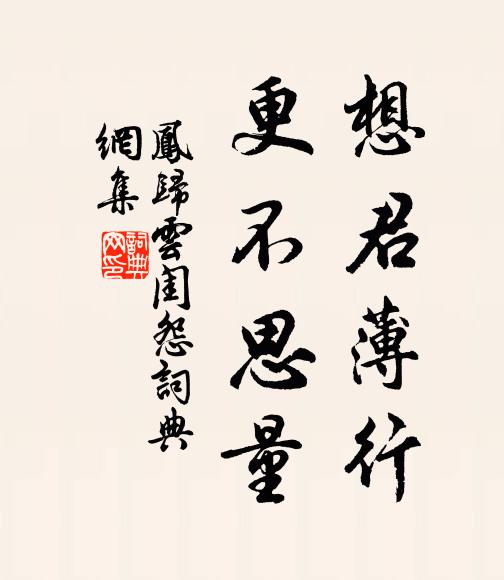 想君薄行
更不思量
鳳歸雲閨怨詞典
網集
詞典
网印